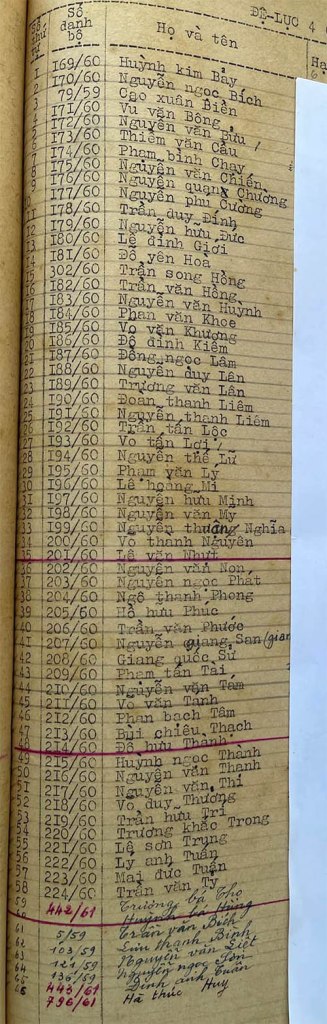 ĐỆ-LỤC 4
Số thứ tự Số danh bộ Họ và tên
1 169/60 Huỳnh kim Bảy
2 170/60 Nguyễn ngọc Bích
3 79/59 Cao xuân Biên
4 171/60 Vu văn Bông
5 172/60 Nguyễn văn Bửu
6 173/60 Thiềm văn Cầu
7 174/60 Phạm bình Chay
8 175/60 Nguyễn văn Chiến
9 176/60 Nguyễn quang Chương
177/60 Nguyễn phú Cường
11 178/60 Trần duy Đính
12 179/60 Nguyễn hữu Đức
13 180/60 Lê đình Giơi
181/60 Đỗ yên Hoà
302/60 Trần song Hồng
16 182/60 Trần văn Hồng
17 183/60 Nguyễn văn Huỳnh
18 184/60 Phan văn Khoe
19 185/60 Vo văn Khương
20 186/60 Đỗ đình Kiếm
21 187/60 Đồng ngọc Lâm
22 188/60 Nguyễn duy Lân
23 189/60 Trương văn Lân
24 190/60 Đoàn thanh Liêm
25 191/60 Nguyễn thanh Liêm
26 192/60 Trần tấn Lộc
27 193/60 Vo tấn Lợi
28 194/60 Nguyễn thế Lữ
29 195/60 Phạm văn Lý
30 196/60 Lê hoàng Mi
31 197/60 Nguyễn hữu Minh
32 198/60 Nguyễn văn Mỹ
33 199/60 Nguyễn thường Nghĩa
34 200/60 Vo thanh Nguyên
35 201/60 Lê văn Nhựt
202/60 Nguyễn văn Non
37 203/60 Nguyễn ngọc Phát
38 204/60 Ngô thanh Phong
39 205/60 Hồ hữu Phúc
40 206/60 Trần văn Phước
41 207/60 Nguyễn giang San (gian
42 208/60 Giang quốc Sử
43 209/60 Phạm tấn Tài
44 210/60 Nguyễn văn Tám
45 211/60 Vo văn Tánh
46 212/60 Phan bạch Tâm
47 213/60 Bùi chiêu Thạch
214/60 Đỗ hưu Thành
49 215/60 Huỳnh ngọc Thành
50 216/60 Nguyễn văn Thanh
51 217/60 Nguyễn văn Thi
52 218/60 Vo duy Thường
53 219/60 Trần hữu Trí
54 220/60 Trương khắc Trọng
55 221/60 Lê sơn Trung
56 222/60 Lý anh Tuấn
57 223/60 Mai đức Tuấn
58 224/60 Trần văn Tý
59 442/61 Trương bá Thọ
60 Huỳnh bá Hùng
61 5/59 Trần văn Bích
62 103/59 Lưu thanh Bình
63 121/59 Nguyễn văn Liệt
64 136/59 Nguyễn ngọc Sơn
65 443/61 Đinh anh Tuấn
66 796/61 Hà thúc Huy